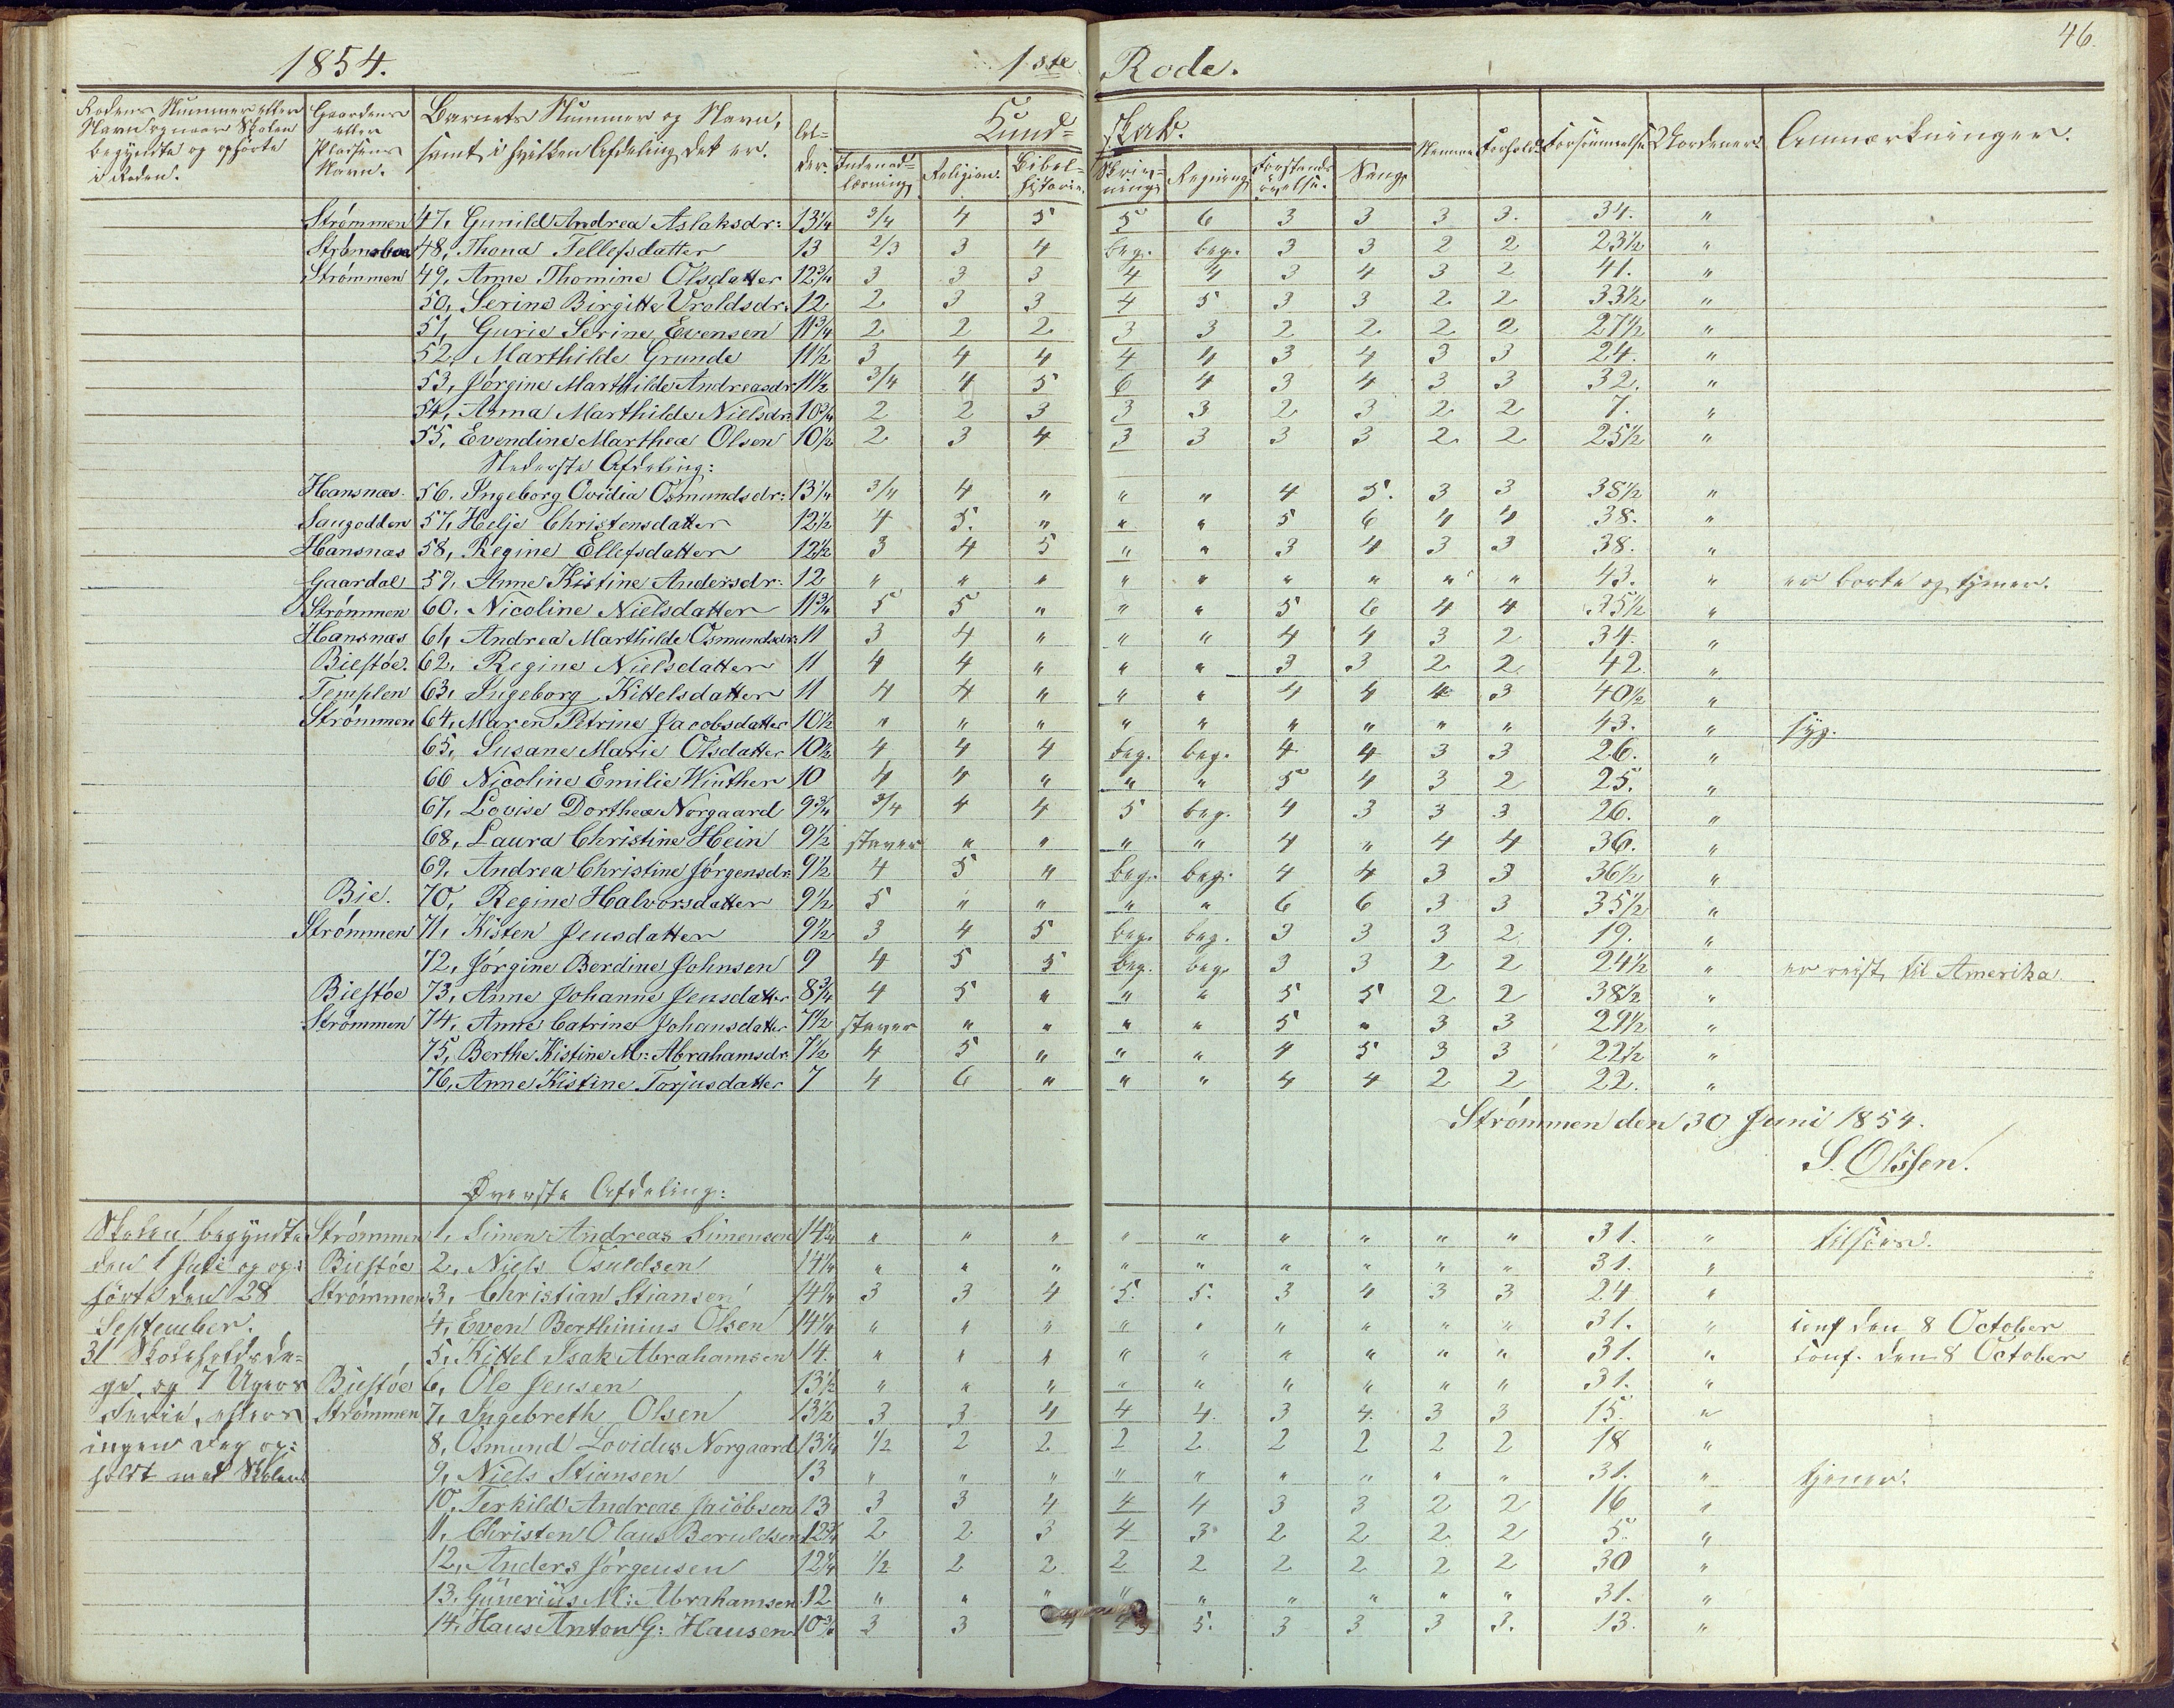 46.
1854. 1ste Rode.
Rodens Nummer eller Navn og naar Skolen begyndte og ophörte i Roden. | Gaardens eller Pladsens Navn. | Barnets Nummer og Navn, samt i hvilken Afdeling det er. | Al-der. | Kund= skab. | Indenad-læsning | Religion. | Bibel-historie. | Skriv-ning | Regning | Forstands övelse. | Sang | Nemme | Forhold. | Forsömmelse | Anmærkninger.
Strömmen 47, Gunild Andrea Aslaksdr: 13 1/4 3/4 4 5 5 6 3 3 3 3. 34. "
Strömsboe 48, Thona Tellefsdatter 13 2/3 3 4 beg. beg. 3 3 2 2 23 1/2 "
Strömmen 49, Anne Thomine Olsdatter 12 3/4 3 3 3 4 4 3 4 3 2 41. "
50, Serine Birgitte Vroldsdr: 12 2 3 3 4 5 3 3 2 2 33 1/2 "
51, Gurie Serine Evensen 11 3/4 2 2 2 3 3 2 2 2 2 27 1/2 "
52, Marthilde Grunde 11 1/2 3 4 4 4 4 3 4 3 3 24. "
53, Jörgine Marthilde Andreasdr 11 1/2 3/4 4 5 6 4 3 4 3 3 32. "
54, Anna Marthilde Nielsdr: 10 3/4 2 2 3 3 3 2 3 2 2 7. "
55, Evendine Marthea Olsen 10 1/2 2 3 4 3 3 3 3 2 2 25 1/2 "
Nederste Afdeling:
Hansnæs. 56. Ingeborg Ovidia Osmundsdr: 13 1/4 3/4 4 " " " 4 5. 3 3 38 1/2 "
Saugodden 57, Helje Christensdatter 12 1/2 4 5. " " " 5 6 4 4 38. "
Hansnæs 58, Regine Ellefsdatter 12 1/2 3 4 5 " " 3 4 3 3 38. "
Gaardal 59, Anne Kistine Andersdr: 12 " " " " " " " " " 43. " er borte og tjener.
Strömmen 60. Nicoline Nielsdatter 11 3/4 5 5 " " " 5 6 4 4 35 1/2 "
Hansnæs 61, Andrea Marthilde Osmundsdr: 11 3 4 " " " 4 4 3 2 34. "
Biestöe. 62, Regine Nielsdatter 11 4 4 " " " 3 3 2 2 42 "
Templen 63, Ingeborg Kittelsdatter 11 4 4 " " " 4 4 4 3 40 1/2 "
Strömmen 64, Maren Petrine Jacobsdatter 10 1/2 " " " " " " " " " 43. " syg.
65, Susane Marie Olsdatter 10 1/2 4 4 4 beg. beg. 4 4 3 3 26. "
66 Nicoline Emilie Winther 10 4 4 " " " 5 4 3 2 25. "
67, Lovise Dorthea Norgaard 9 3/4 3/4 4 4 5 beg. 4 3 3 3 26. "
68, Laura Christine Hein 9 1/2 staver " " " " 4 " 4 4 36. "
69, Andrea Christine Jörgensdr. 9 1/2 4 5 " beg. beg. 4 4 3 3 36 1/2 "
Bie. 70, Regine Halvorsdatter 9 1/2 5 " " " " 6 6 3 3 35 1/2 "
Strömmen 71, Kisten Jensdatter 9 1/2 3 4 5 beg. beg. 3 3 3 2 19. "
72, Jörgine Berdine Johnsen 9 4 5 5 beg. beg. 3 3 2 2 24 1/2 " er reist til Amerika
Biestöe 73, Anne Johanne Jensdatter 8 3/4 4 5 " " " 5 5 2 2 38 1/2 "
Strömmen 74, Anne Catrine Johansdatter 7 1/2 staver " " " " 5 " 3 3 29 1/2 "
75, Berthe Kistine M: Abrahamsdr. 7 1/2 4 5 " " " 4 5 3 3 22 1/2 "
76, Anne Kistine Torjusdatter 7 4 6 " " " 4 4 2 2 22. "
Strömmen den 30 Juni 1854.
S. Olssen.
Øverste Afdeling:
Skolen begyndte Strömmen 1, Simen Andreas Simensen 14 3/4 " " " " " " " " " 31. " tilsöes.
den 1 Juli og op: Biestöe 2, Niels Osuldsen 14 1/4 " " " " " " " " " 31. "
hörte den 28 Strömmen 3, Christian Stiansen 14 1/4 3 3 4 5. 5. 3 4 3 3 24 "
September. 4, Even Berthinius Olsen 14 1/4 " " " " " " " " " 31. " conf den 8 October
31 Skoleholdsda= 5, Kittel Isak Abrahamsen 14. " " " " " " " " " 31. " conf. den 8 October
ge, og 7 Ugers Biestöe 6, Ole Jensen 13 1/2 " " " " " " " " " 31. "
Ferie, ellers Strömmen 7, Ingebreth Olsen 13 1/2 3 3 4 4 4. 3 4. 3 3 15. "
ingen Dag op: 8, Osmund Lovidus Norgaard 13 1/4 1/2 2 2 2 2 2 2 2 2 18 "
holdt med Skolen 9, Niels Stiansen 13 " " " " " " " " " 31. " tjener.
10, Terkild Andreas Jacobsen 13 3 3 4 4 4 3 3 2 2 16 "
11, Christen Olaus Beruldsen 12 3/4 2 2 3 4 3 2 2 2 2 5. "
12, Anders Jörgensen 12 1/4 1/2 2 2 2 2 2 2 2 2 30 "
13. Gunerius M: Abrahamsen 12 " " " " " " " " " 31. "
14, Hans Anton G: Hansen 10 3/4 3 3 4 5. 3 3 3 3. 13. "